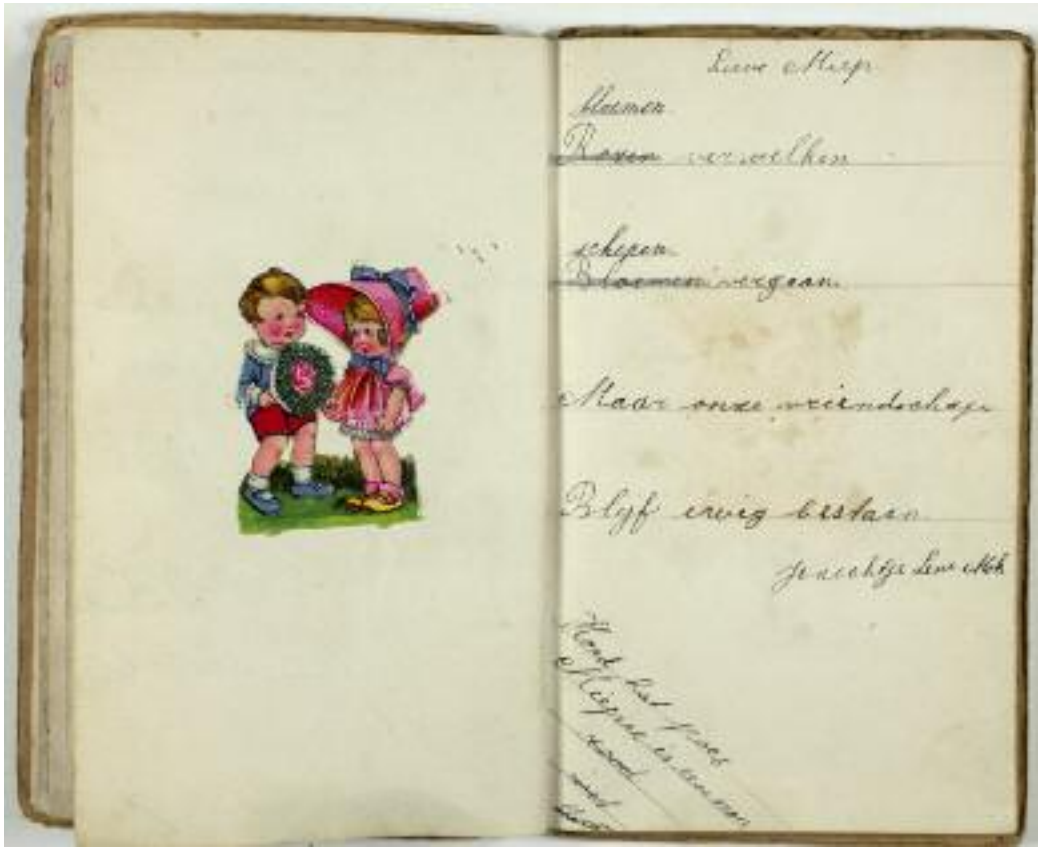 Lieve Miep
bloemen
Rozen verwelken
schepen
Bloemen vergaan
Maar onze vriendschap
Blijf eeuwig bestaan
je nichtje Lene Mok
Hond kat poes
Miepse is een